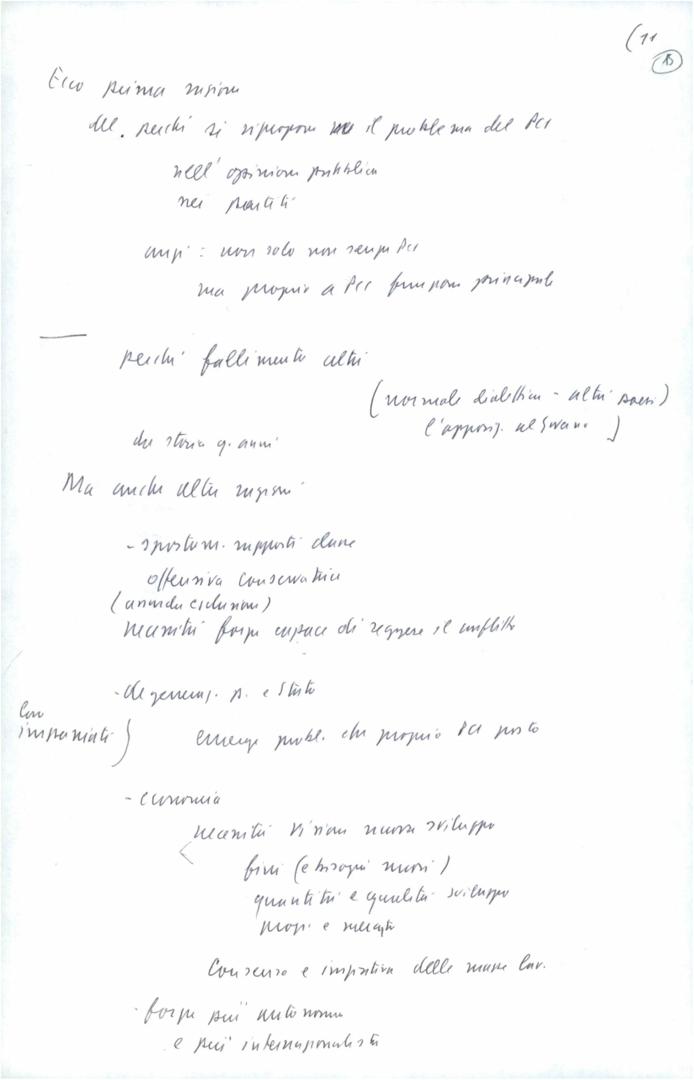 (11
15
Ecco prima ragione
del perché si ripropone il problema del PCI
nell'opinione pubblica
nei partiti
anzi: non solo non senza PCI
ma proprio a PCI funzione principale
perché fallimento altri
(normale dialettica - altri paesi)
l'opposiz. al Governo
da storia q. anni
Ma anche altre ragioni
- spostam. rapporti classe
offensiva conservatrice
(anche esclusione)
necessità forza capace di reggere il conflitto
- degeneraz. p. e Stato
Con
impaniati } emerge probl. che proprio PCI posto
- economia
necessità visione nuova sviluppo
fini (e bisogni nuovi)
quantità e qualità sviluppo
progr. e mercato
Consenso e iniziativa delle masse lav.
- forza più autonoma
e più internazionalista